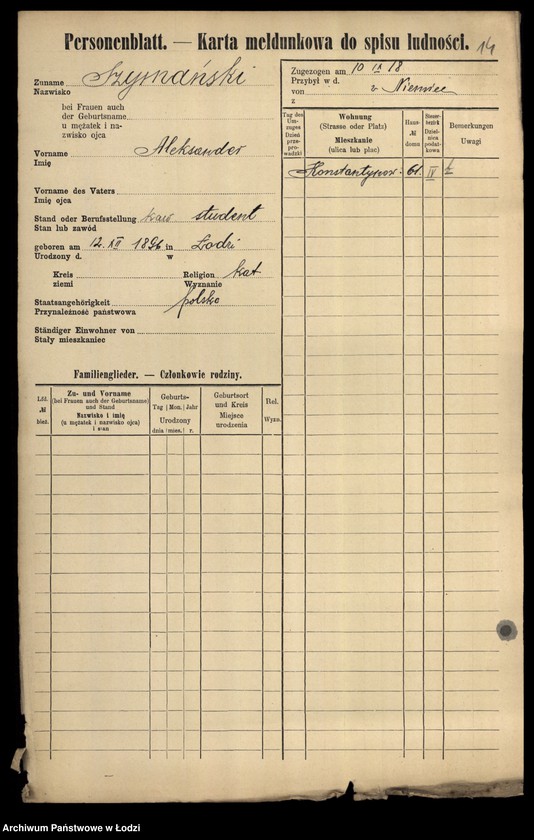 Personenblatt. — Karta meldunkowa do spisu ludności.
14
Zuname Szymański
Nazwisko
bei Frauen auch
der Geburtsname
u mężatek i na-
zwisko ojca
Vorname Aleksander
Imię
Vorname des Vaters
Imię ojca
Stand oder Berufsstellung kaw student
Stan lub zawód
geboren am 12. XII 1896 in Łodzi
Urodzony d. w
Kreis Religion kat
ziemi Wyznanie
Staatsangehörigkeit polsko
Przynależność państwowa
Ständiger Einwohner von
Stały mieszkaniec
Familienglieder. — Członkowie rodziny.
Lfd. № bież.
Zu- und Vorname
(bei Frauen auch der Geburtsname)
und Stand
Nazwisko i imię
(u mężatek i nazwisko ojca)
i stan
Geburts-
Tag | Mon. | Jahr
Urodzony
dnia | mies. | r.
Geburtsort
und Kreis
Miejsce
urodzenia
Rel.
Wyzn.
Zugezogen am 10 IX 18
Przybył w d.
von z Niemiec
z
Tag des
Um-
zuges
Dzień
prze-
prowadzki
Wohnung
(Strasse oder Platz)
Mieszkanie
(ulica lub plac)
Haus-
№
domu
Steuer-
bezirk
Dziel-
nica
podat-
kowa
Bemerkungen
Uwagi
Konstantynow. 61. IV
Archiwum Państwowe w Łodzi